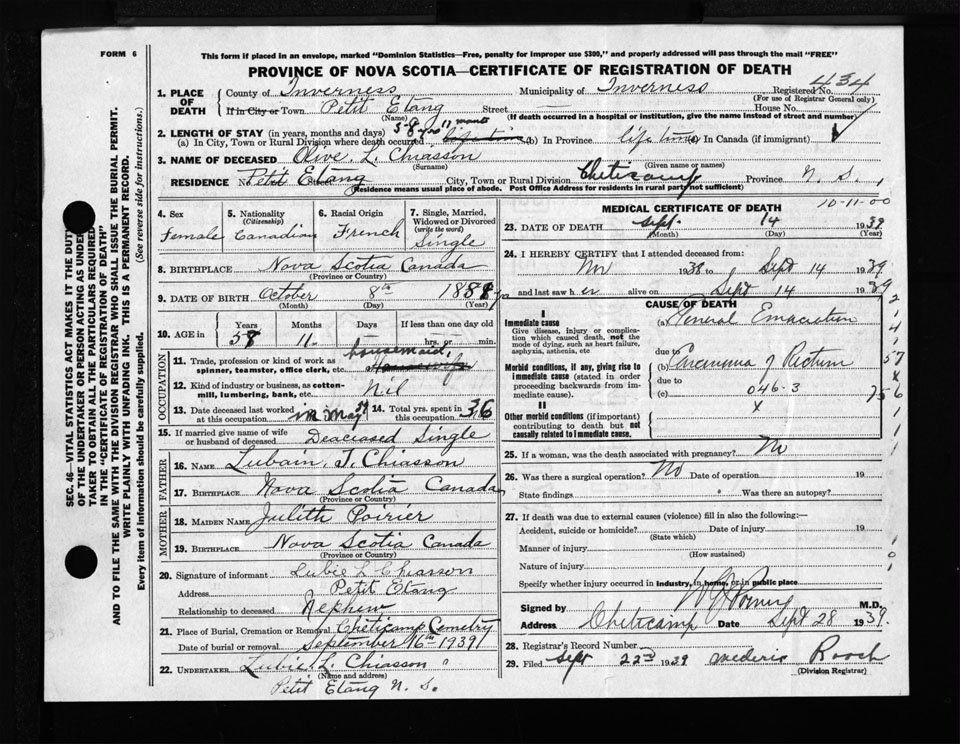 FORM 6
This form if placed in an envelope, marked "Dominion Statistics—Free, penalty for improper use $300," and properly addressed will pass through the mail "FREE"
PROVINCE OF NOVA SCOTIA—CERTIFICATE OF REGISTRATION OF DEATH
434
1. PLACE OF DEATH
County of Inverness
Municipality of Inverness
Registered No.
(For use of Registrar General only)
If in City or Town Petit Etang
(Name)
Street —
House No.
(If death occurred in a hospital or institution, give the name instead of street and number)
2. LENGTH OF STAY (in years, months and days) 58 yrs 11 months
(a) In City, Town or Rural Division where death occurred life time (b) In Province life time (c) In Canada (if immigrant)
3. NAME OF DECEASED Olive. L. Chiasson
(Surname) (Given name or names)
RESIDENCE No. Petit Etang City, Town or Rural Division Cheticamp Province N. S.
(Residence means usual place of abode. Post Office Address for residents in rural parts not sufficient)
4. Sex
Female
5. Nationality
(Citizenship)
Canadian
6. Racial Origin
French
7. Single, Married, Widowed or Divorced
(write the word)
Single
8. BIRTHPLACE Nova Scotia Canada
(Province or Country)
9. DATE OF BIRTH October 8th
(Month) (Day) (Year)
10. AGE in
Years Months Days If less than one day old
58 11 hrs. or min.
OCCUPATION
11. Trade, profession or kind of work as spinner, teamster, office clerk, etc. housemaid
12. Kind of industry or business, as cotton-mill, lumbering, bank, etc. Nil
13. Date deceased last worked at this occupation in May 39
14. Total yrs. spent in this occupation 36
15. If married give name of wife or husband of deceased Deaciased Single
FATHER
16. NAME Lubain. J. Chiasson
17. BIRTHPLACE Nova Scotia Canada
(Province or Country)
MOTHER
18. MAIDEN NAME Julith Poirier
19. BIRTHPLACE Nova Scotia Canada
(Province or Country)
20. Signature of informant Lubie L Chiasson
Address Petit Etang
Relationship to deceased Nephew
21. Place of Burial, Cremation or Removal Cheticamp Cemetry
Date of burial or removal September 16th 1939
22. UNDERTAKER Lubie L. Chiasson
(Name and address)
Petit Etang N. S.
10-11-00
MEDICAL CERTIFICATE OF DEATH
23. DATE OF DEATH Sept. 14 1939
(Month) (Day) (Year)
24. I HEREBY CERTIFY that I attended deceased from:
Nov 1938 to Sept 14 1939
and last saw her alive on Sept 14 1939
CAUSE OF DEATH
I
Immediate cause
Give disease, injury or complication which caused death, not the mode of dying, such as heart failure, asphyxia, asthenia, etc
(a) General Emaciation
due to
Morbid conditions, if any, giving rise to immediate cause (stated in order proceeding backwards from immediate cause).
(b) Carcinoma of Rectum
due to
(c) 046-3
x
II
Other morbid conditions (if important) contributing to death but not causally related to immediate cause.
25. If a woman, was the death associated with pregnancy? No
26. Was there a surgical operation? No Date of operation 19
State findings Was there an autopsy?
27. If death was due to external causes (violence) fill in also the following:—
Accident, suicide or homicide? Date of injury 19
(State which)
Manner of injury
(How sustained)
Nature of injury
Specify whether injury occurred in industry, in home, or in public place
Signed by M.D.
Address Cheticamp Date Sept 28 1939.
28. Registrar's Record Number
29. Filed Sept 22nd 1939
(Division Registrar)
SEC. 46—VITAL STATISTICS ACT MAKES IT THE DUTY
OF THE UNDERTAKER OR PERSON ACTING AS UNDER-
TAKER TO OBTAIN ALL THE PARTICULARS REQUIRED
IN THE "CERTIFICATE OF REGISTRATION OF DEATH"
AND TO FILE THE SAME WITH THE DIVISION REGISTRAR WHO SHALL ISSUE THE BURIAL PERMIT.
WRITE PLAINLY WITH UNFADING INK. THIS IS A PERMANENT RECORD.
Every item of information should be carefully supplied. (See reverse side for instructions.)